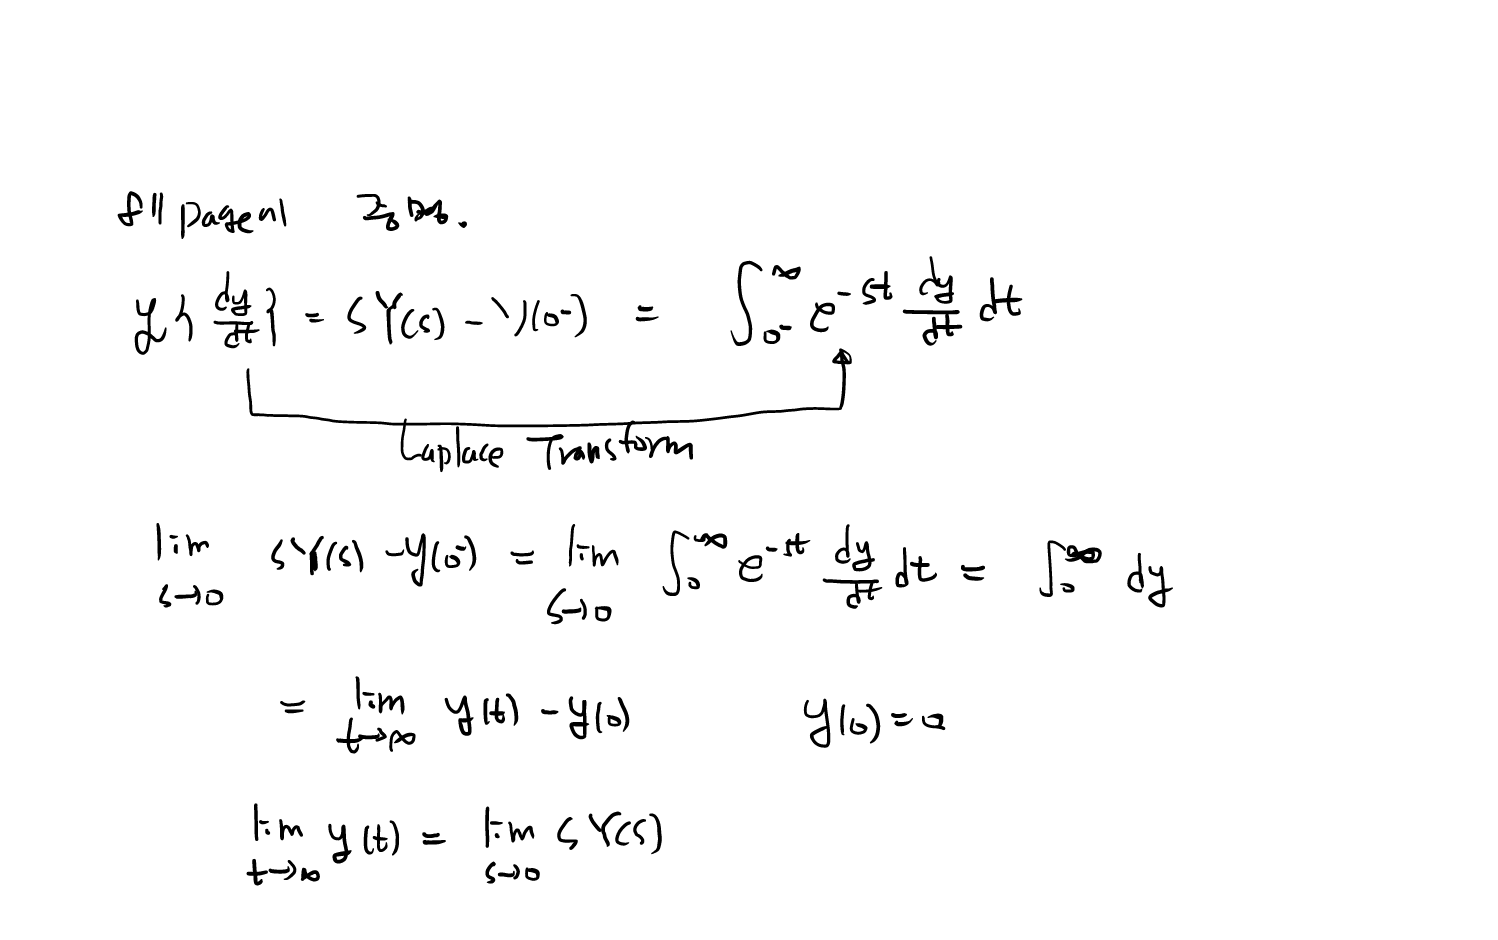 ℒ{dy/dt} = sY(s) - y(0⁻) = ∫₀₋^∞ e^{-st} dy/dt dt
Laplace Transform
lim s→0 sY(s) - y(0⁻) = lim s→0 ∫₀^∞ e^{-st} dy/dt dt = ∫₀^∞ dy
= lim t→∞ y(t) - y(0) y(0)=0
lim t→∞ y(t) = lim s→0 sY(s)